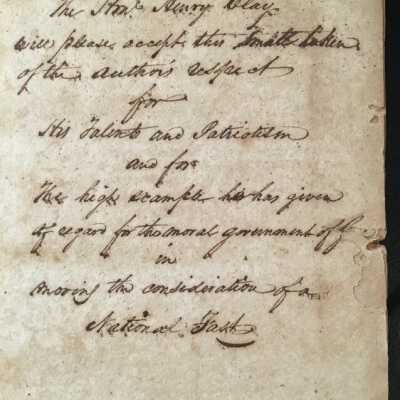 The Honl. Henry Clay
will please accept this small token
of the author's respect
for
His Talents and Patriotism
and for
The high example he has given
of regard for the moral government of
in
moving the consideration of a
National Fast